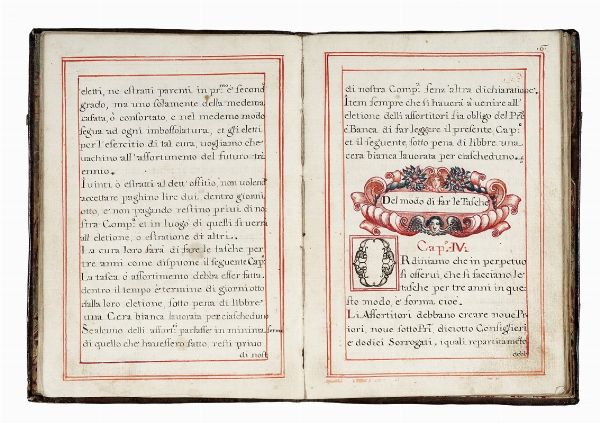 eletti, ne estratti parenti in pr.mo e second
grado, ma uno solamente della medema
casata, ò confortato e nel medemo modo
segua ad ogni imbossolatura, et gli eletti
per l'esercitio di tal cura, uogliamo che
uachino all'assortimento del futuro tri
ennio.
I uinti ò estratti al dett'offitio, non uolend
accettare paghino lire dui, dentro giorni
otto, e non pagando restino priui di no
stra Comp.a et in luogo di quelli si uerra
all eletione, o estratione di altri.
La cura loro sarà di fare le tasche per
tre anni come dispuone il seguente Cap.o
La tasca è assortimento debba esser fatta
dentro il tempo è termine di giorni otto
dalla loro eletione, sotto pena di libbre
una Cera bianca lauorata per ciascheduno
Se alcuno delli assort.ri parlasse in minima forma
di quello che hauessero fatto, resti priuo
di nost
16
di nostra Comp.a senz'altra dichiaratione.
Item sempre che si hauerà à uenire all'
eletione delli assortitori sia obligo del Pro
e Banca di far leggere il presente Cap.o
et il seguente sotto pena di libbre una
cera bianca lauorata per ciascheduno.
Del modo di far le Tasche
Cap.o IV.
Ordiniamo che in perpetuo
si osserui, che si facciano le
tasche per tre anni in que
sto modo, e forma cioe.
Li Assortitori debbano creare noue Pr
iori, noue sottopri diciotto Consiglieri
e dodici Sorrogati, i quali repartitamete
debb